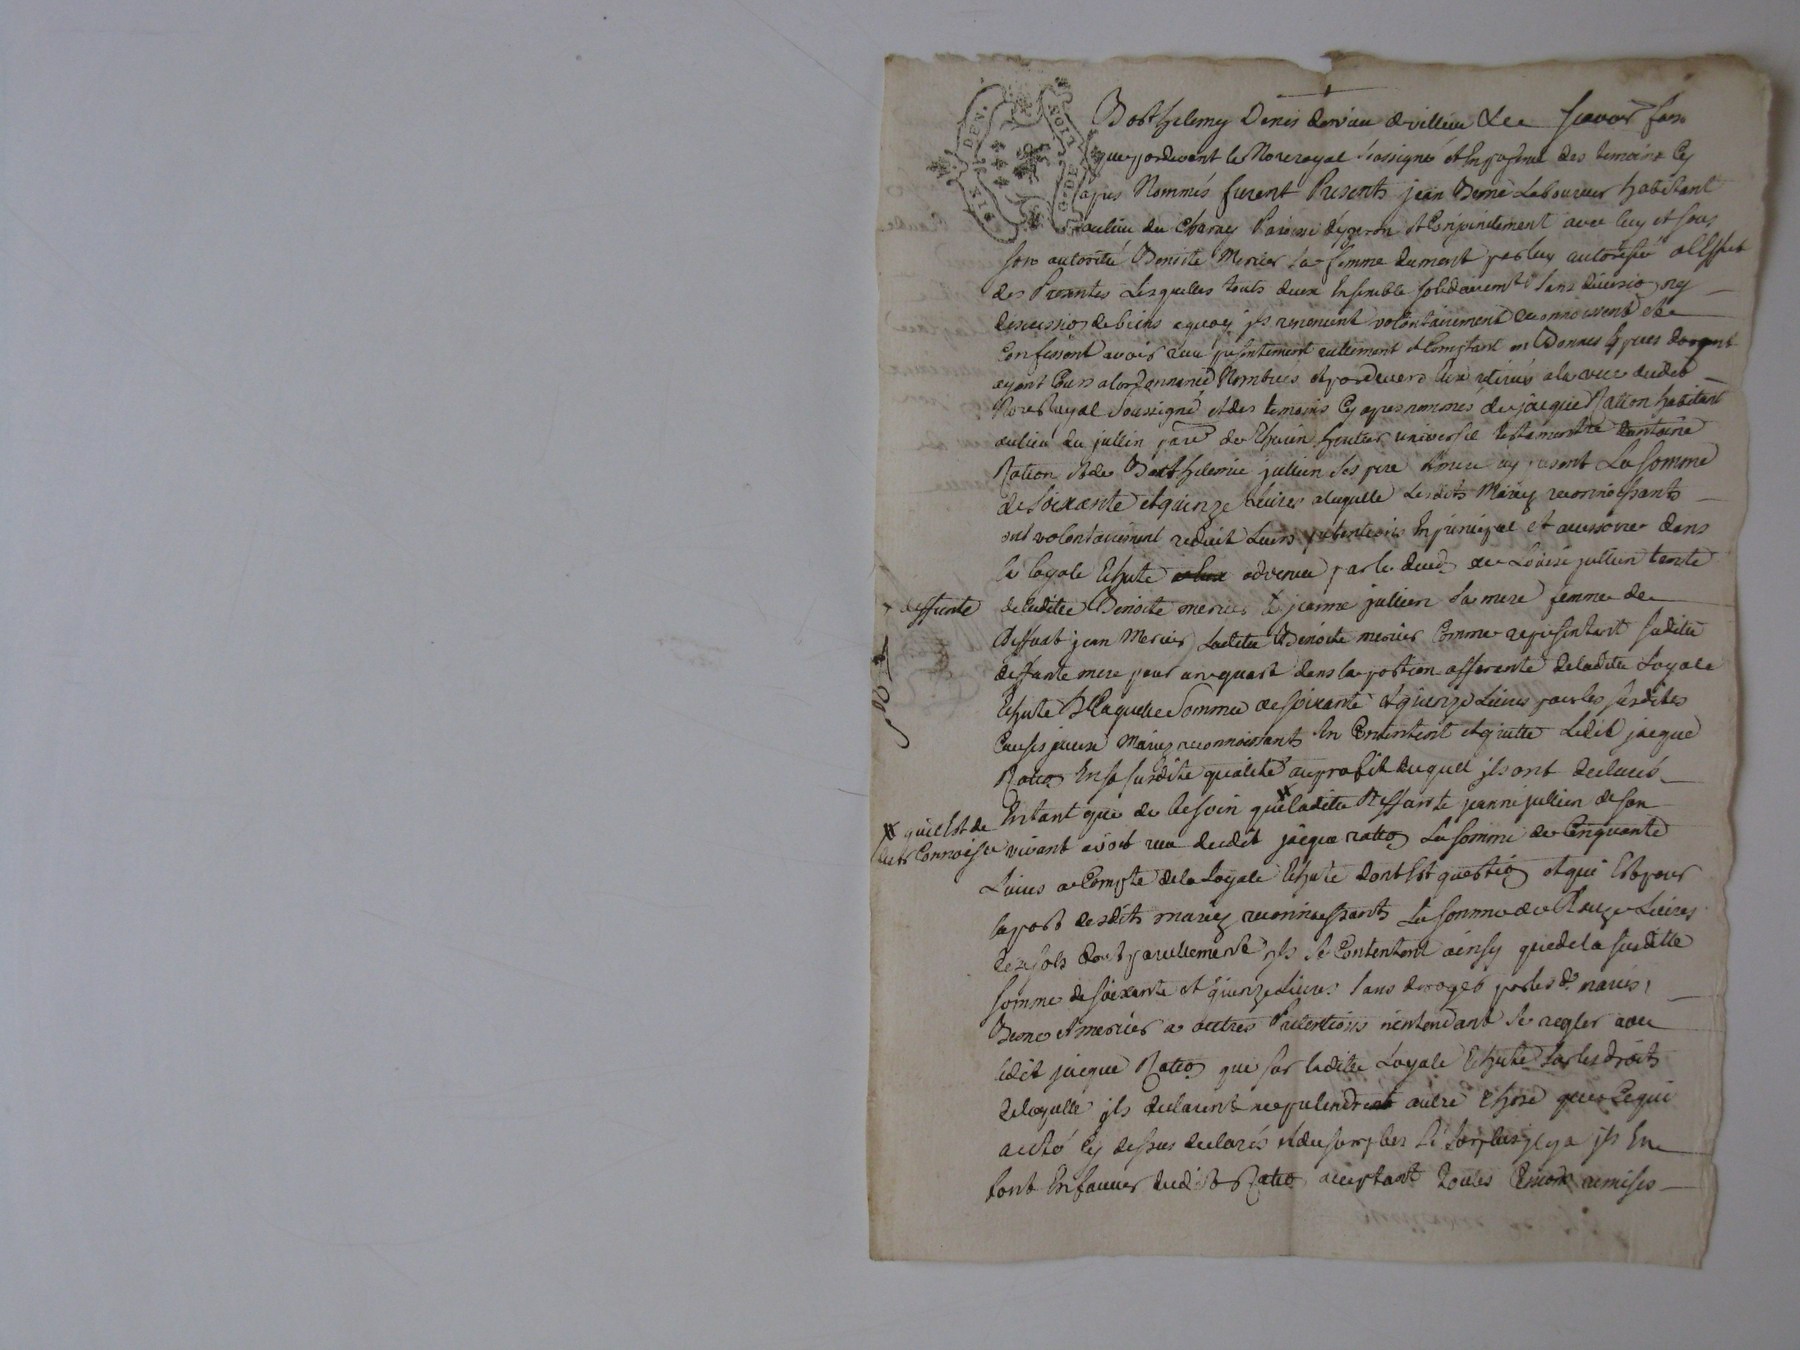 SIX DEN.
G. DE LION
Barthelemy Denis de villieu &ce scavoir fais
que pardevant le Nore royal soussigné et en presence des temoins cy
apres Nommés furent Presents jean Berne Laboureur habitant
au lieu du Charay Paroisse et Conjointement avec luy et sous
son autorité Benoite Mercier sa femme dument par luy autorisée a l'Effet
des Presentes Lesquelles touts deux Ensemble solidairemt sans division ny
discussion de biens a quoy ils renoncent volontairement reconnoissent et
Confessent avoir reçu presentement reellement et Comptant en Bonnes Especes d'argent
ayant Cours a l'ordonnance Nombrés et pardevers Eux retirés a la vue dudit
Nore Royal Soussigné et des temoins Cy apres nommés de jacque Ration habitant
au lieu du jullin parr de heritier universel testamentre d'antoine
Ration et de Barthelemie jullien ses pere et mere cy present La Somme
de soixante et quinze Livres a laquelle Lesdits Mariez reconnoissants
ont volontairement reduit Leurs pretentions En principal et accessoire dans
la loyale Echute advenue par le deces de Loüise jullien tente
+ deffunte
de laditte Benoite mercier à jeanne jullien sa mere femme de
deffunt jean Mercier Laditte Benoite mercier Comme representant saditte
deffunte mere pour un quart dans la portion afferante de laditte Loyale
Echute De Laquelle Somme de soixante et quinze Livres pour les susdites
Causes iceux Mariez reconnoissants Se Contentent et quitte Ledit jacque
Ration En sa susdite qualité au profit duquel ils ont declarés
Entant que de besoin que laditte deffunte jeanne jullien de son
# qu'il est de
leur Connoissce
vivant avoit reçu dudit jacque ration La somme de Cinquante
Livres a Compte de la Loyale Echute dont Est question et qui Est pour
la part desdits mariez reconnoissants La somme de Douze Livres
dix sols dont pareillement ils Se Contentent ainsy que de la susditte
somme de soixante et quinze Livres sans deroger par les ds mariés
Berne et mercier a autres Pretentions n'entendant Se regler avec
ledit jacque Ration que sur laditte Loyale Echute sur les droits
de laquelle ils declarent ne pretendre autre Chose que Ce qui
a eté Cy dessus declarés et du surplus Si surplus y a ils En
font En faveur dudit Ration acceptant toutes remises